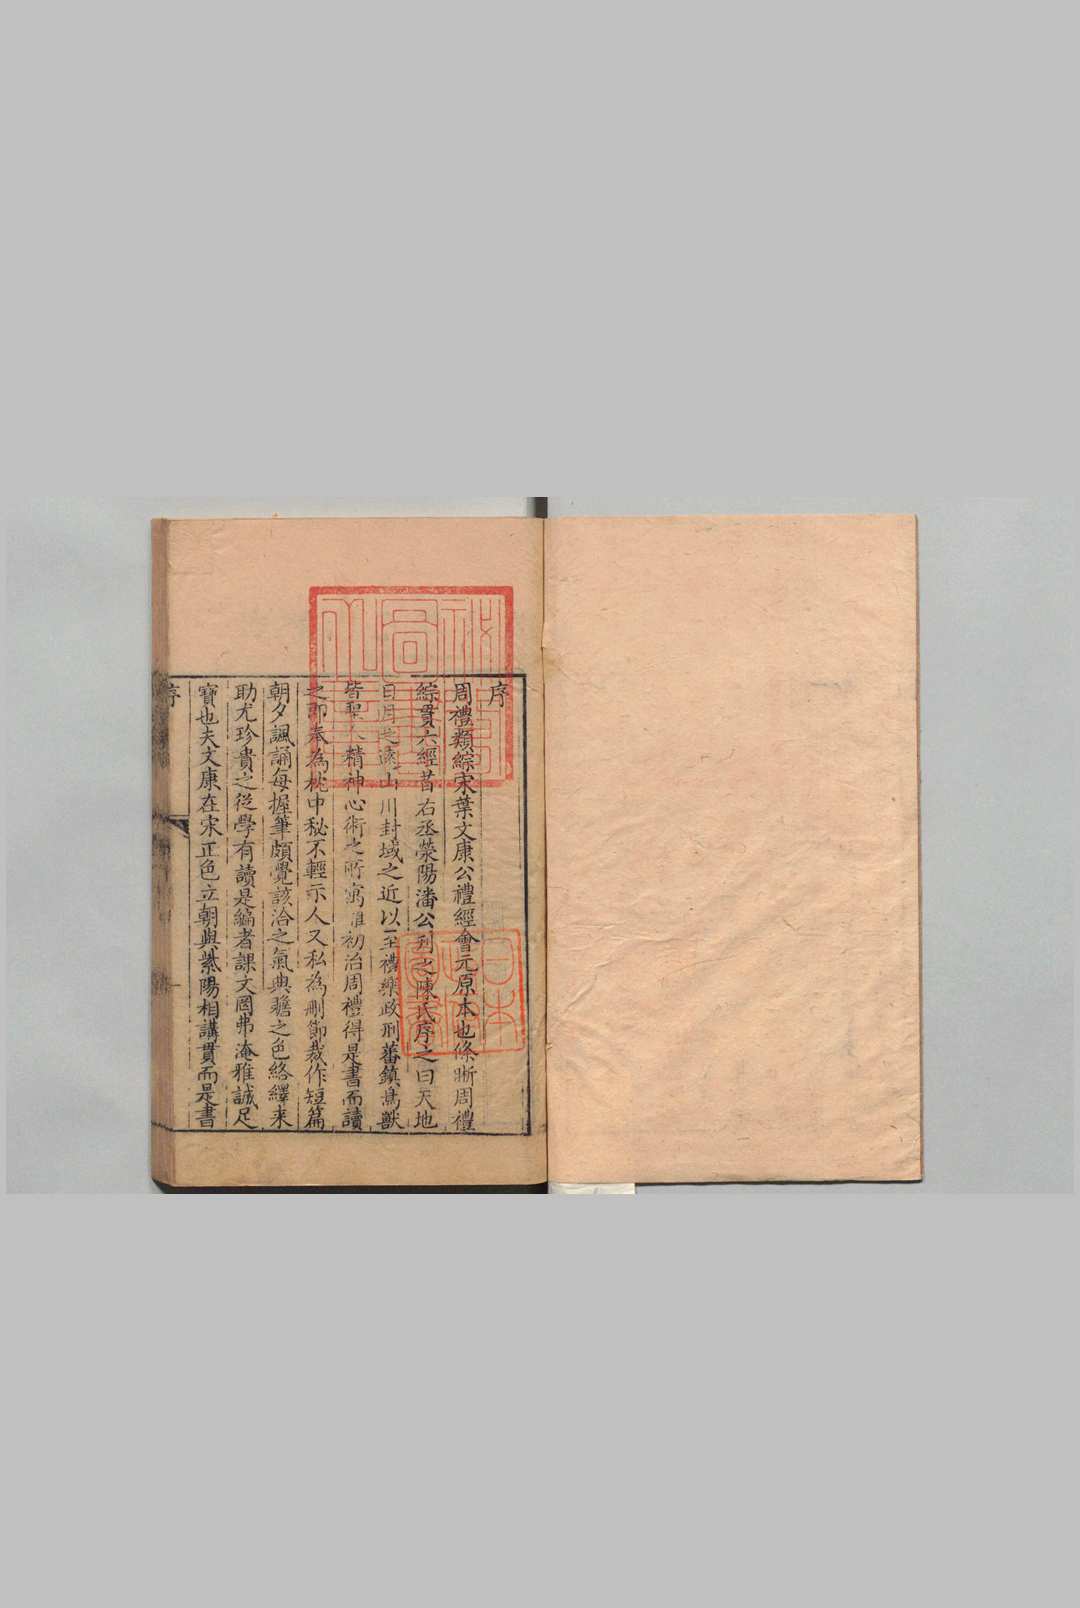 序
周禮類綜宋葉文康公禮經會元原本也條晰周禮
綜貫六經昔右丞滎陽潘公刊之陳氏序之曰天地
日月之遠山川封域之近以至禮樂政刑蕃鎮鳥獸
皆聖人精神心術之所寓誰初治周禮得是書而讀
之即奉為枕中秘不輕示人又私為刪節裁作短篇
朝夕諷誦每握筆頗覺該洽之氣典贍之色絡繹來
助尤珍貴之從學有讀是編者課文罔弗淹雅誠足
寶也夫文康在宋正色立朝與紫陽相講貫而是書
序
日本